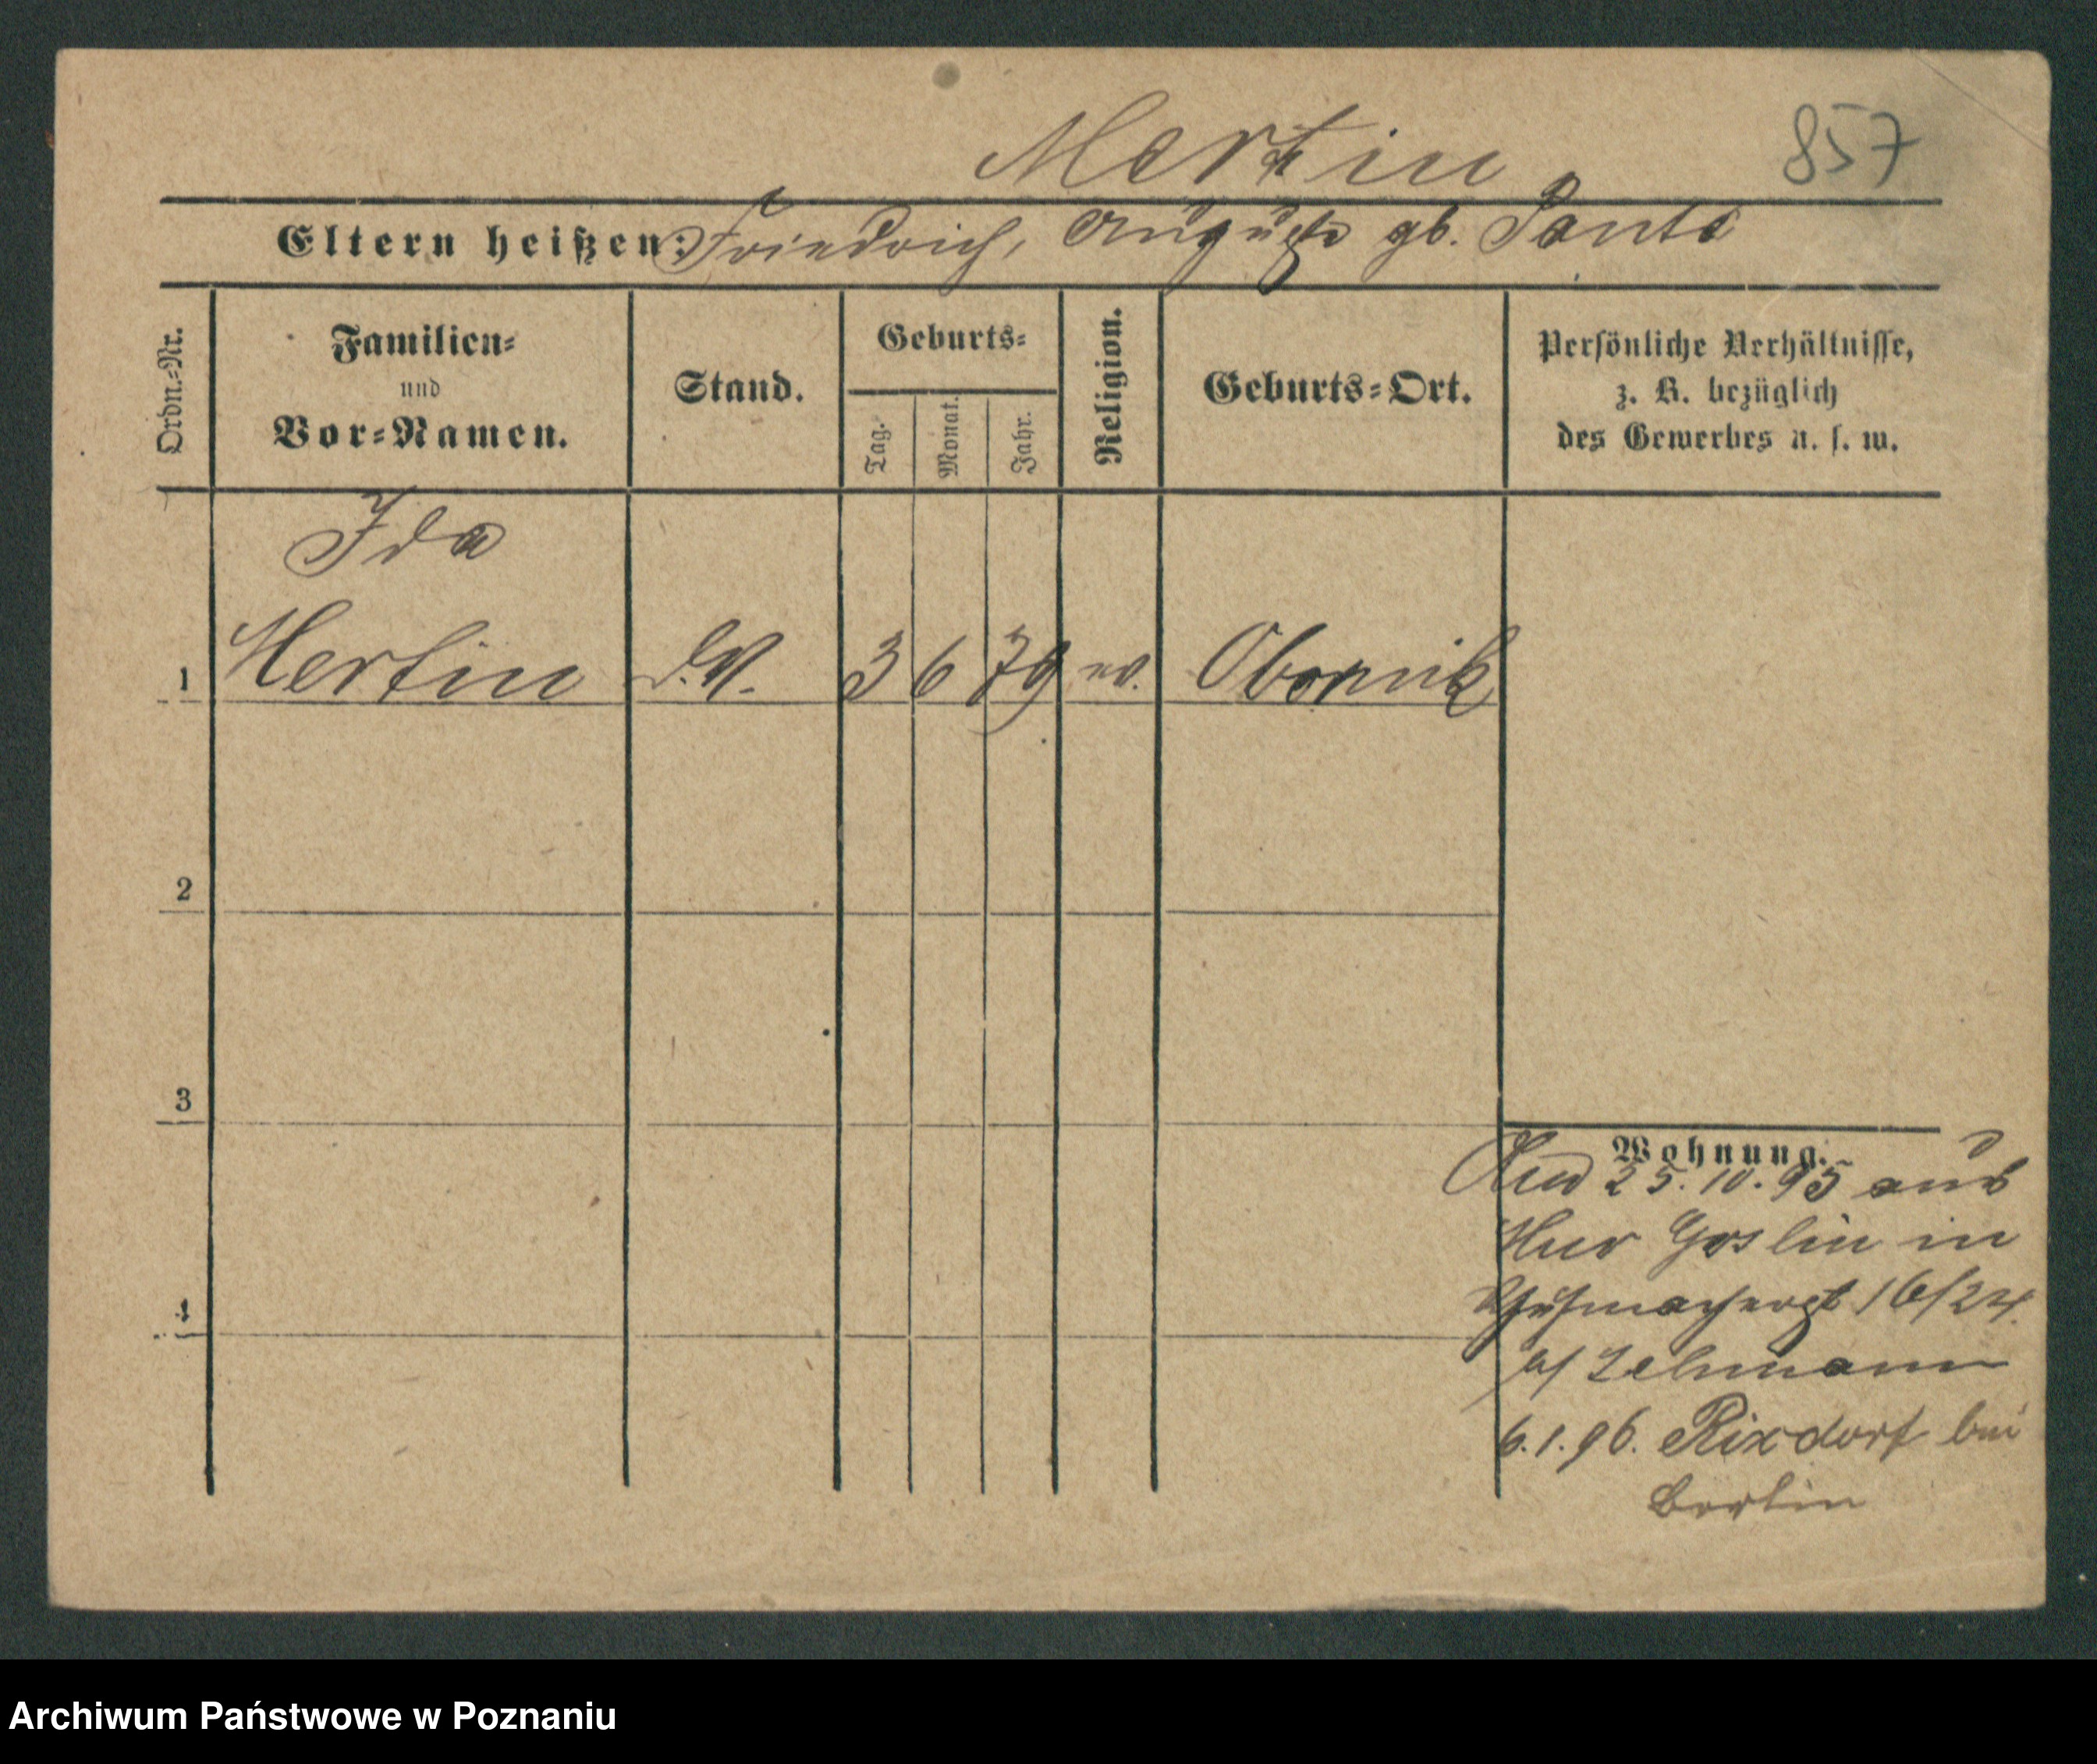 Mertin
857
Eltern heißen: Friedrich, Auguste gb.
Ordn.=Nr.
Familien=
und
Vor=Namen.
Stand.
Geburts=
Tag.
Monat.
Jahr.
Religion.
Geburts=Ort.
Persönliche Verhältnisse,
z. B. bezüglich
des Gewerbes u. s. w.
Ida
1 Mertin 3 6 79 ev. Obornik
2
3
4
Wohnung.
25.10.95 aus
Mur Goslin in
16/24.
b/ Lehmann
6.1.96. Rixdorf bei
Berlin
Archiwum Państwowe w Poznaniu